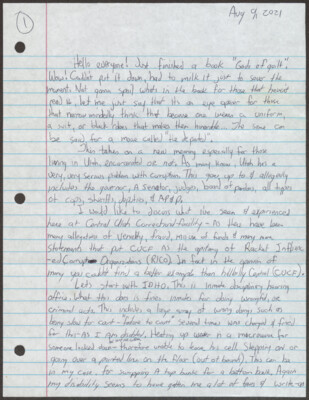 1
Aug 9, 2021
Hello everyone! Just finished a book "Gods of guilt".
Wow! Couldn't put it down, had to milk it just to savor the
moment. Not gonna spoil what's in the book for those that haven't
read it, but let me just say that it's an eye opener for those
that narrow mindedly think that because one wears a uniform,
a suit, or black robes that makes them honorable. The same can
be said for a movie called
This takes on a real meaning especially for those
living in Utah, incarcerated or not. As many know, Utah has a
very, very serious problem with corruption. This goes up to & allegedly
includes the governor, A senator, judges, board of pardons, all types
of cops, sheriffs, deputies, & AP&P.
I would like to discuss what I've seen & experienced
here at Central Utah Correctional Facility. As there have been
many allegations of venality, fraud, misuse of funds & many more
statements that put CUCF as the epitome of Racket Influenc-
ed Corrupt Organizations (RICO). In fact in the opinion of
many you couldn't find a better example than hillbilly Central (CUCF).
Let's start with IDHO. This is inmate disciplinary hearing
office. What this does is fines inmates for doing wrongful, or
criminal acts. This includes a large array of wrong doings such as
being slow for count "failure to count" several times was charged & fined
for this. As I am disabled. Heating up water in a microwave for
someone locked down therefore unable to leave his cell. Stepping on or
going over a painted line on the floor (out of bounds). This can be
in my case, for swapping A top bunk for a bottom bunk. Again
my disability seems to have gotten me a lot of fines & write-ups